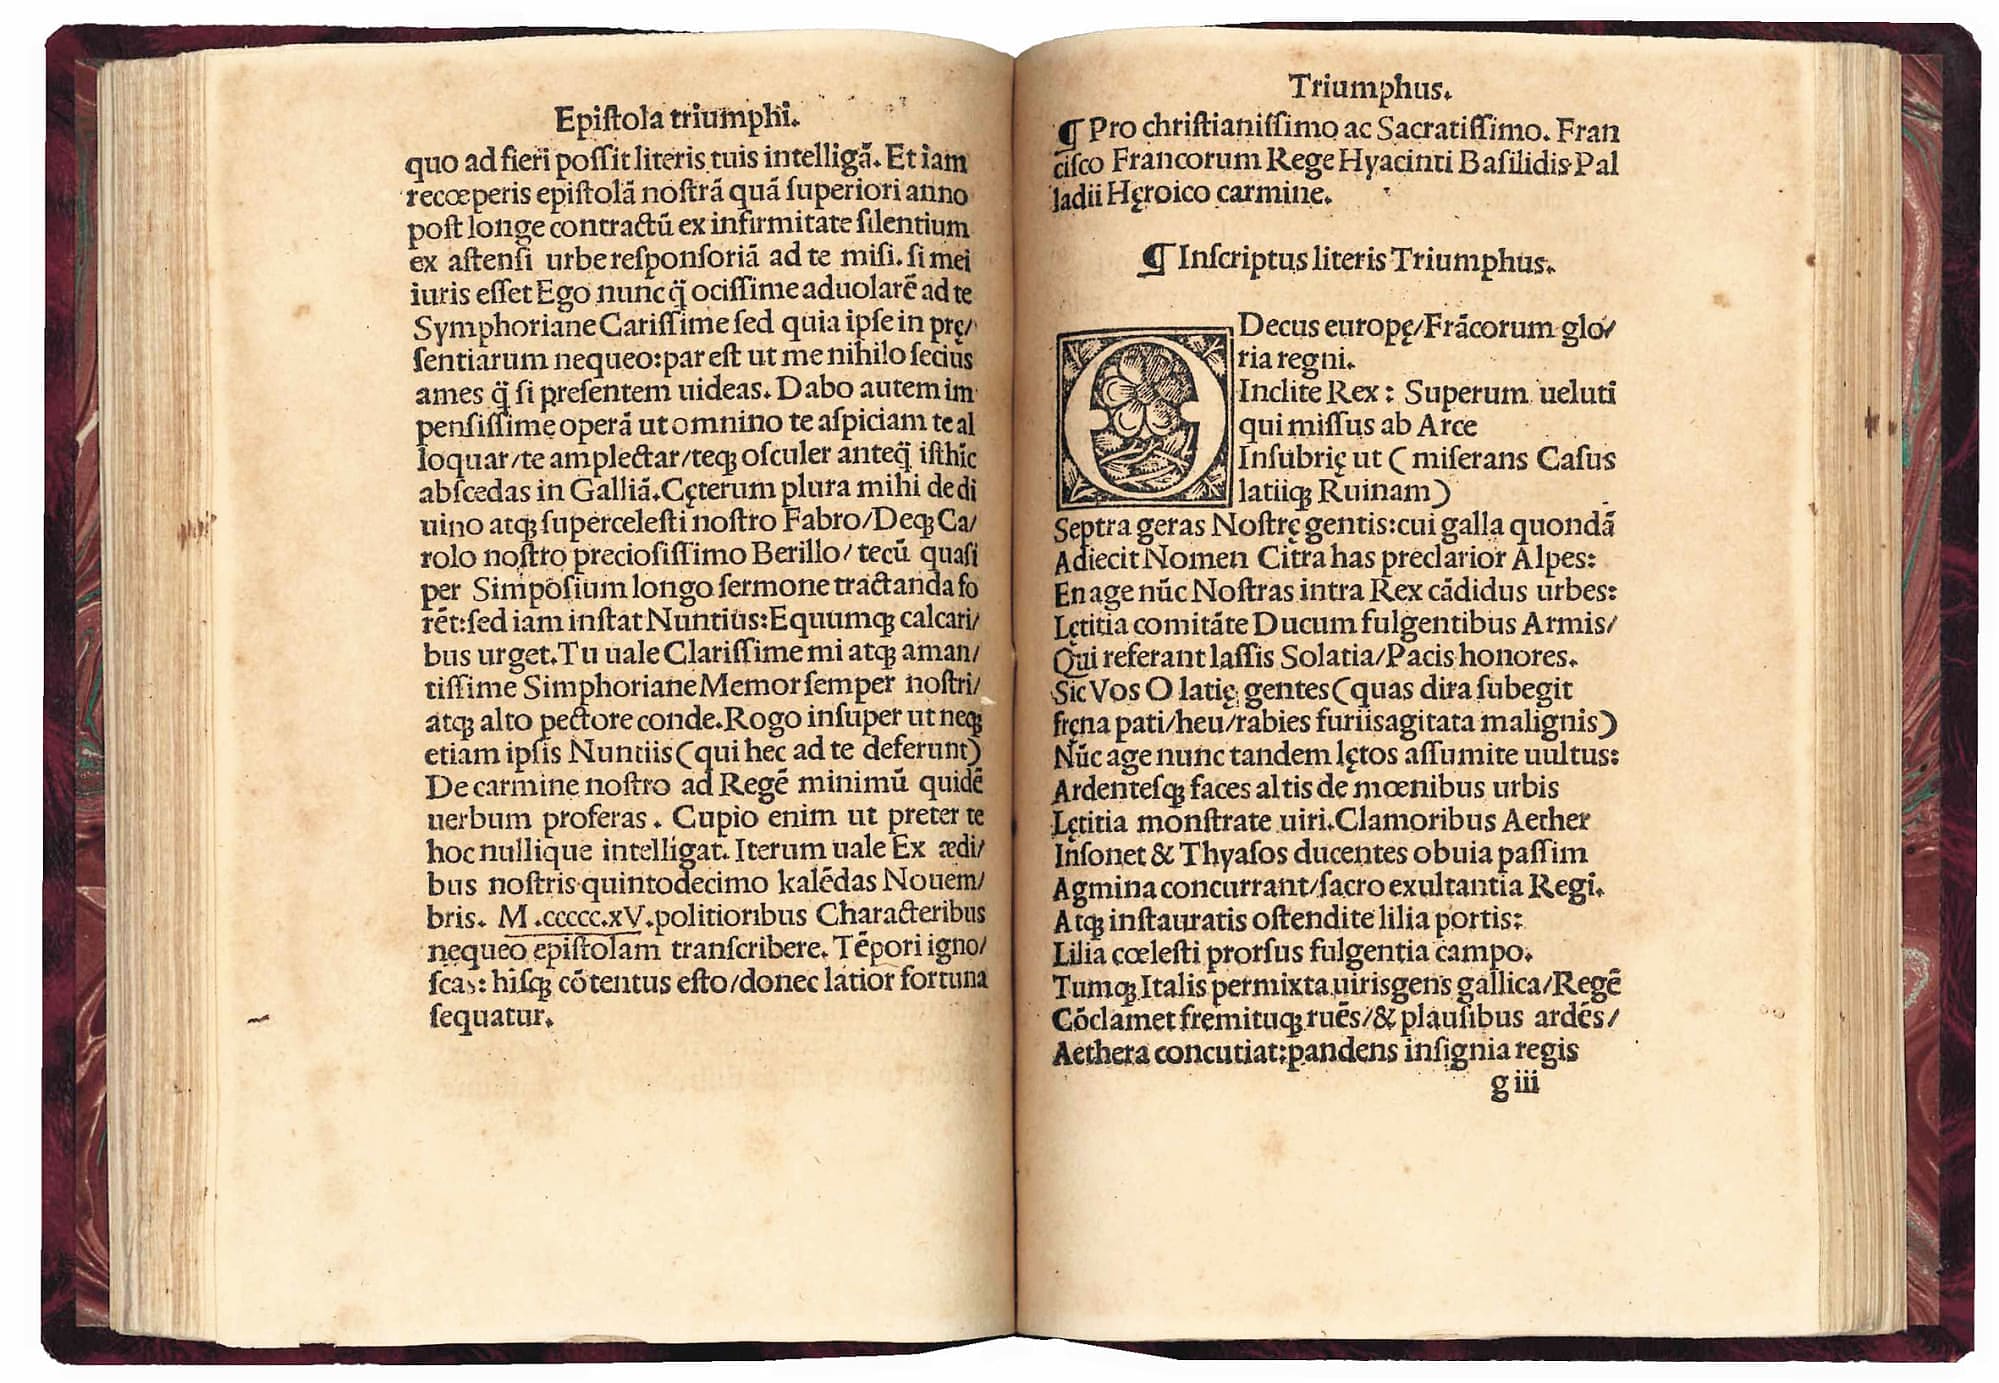 Epiſtola triumphi.
quo ad fieri poſſit literis tuis intelligā. Et iam
recœperis epiſtolā noſtrā quā ſuperiori anno
poſt longe contractū ex infirmitate ſilentium
ex aſtenſi urbe reſponſoriā ad te miſi. ſi mei
iuris eſſet Ego nunc q̄ ociſſime aduolarē ad te
Symphoriane Cariſſime ſed quia ipſe in prę/
ſentiarum nequeo: par eſt ut me nihilo ſecius
ames q̄ ſi preſentem uideas. Dabo autem im
penſiſſime operā ut omnino te aſpiciam te al
loquar/te amplectar/teqꝫ oſculer anteq̄ iſthic
abſcedas in Galliā. Cęterum plura mihi de di
uino atqꝫ ſuperceleſti noſtro Fabro/Deqꝫ Ca/
rolo noſtro precioſiſſimo Berillo/ tecū quaſi
per Simpoſium longo ſermone tractanda fo
rēt: ſed iam inſtat Nuntius: Equumqꝫ calcari/
bus urget. Tu uale Clariſſime mi atqꝫ aman/
tiſſime Simphoriane Memor ſemper noſtri/
atqꝫ alto pectore conde. Rogo inſuper ut neqꝫ
etiam ipſis Nuntiis (qui hec ad te deferunt)
De carmine noſtro ad Regē minimū quidē
uerbum proferas. Cupio enim ut preter te
hoc nullique intelligat. Iterum uale Ex ædi/
bus noſtris quintodecimo kalēdas Nouem/
bris. M.ccccc.xV. politioribus Characteribus
nequeo epiſtolam tranſcribere. Tēpori igno/
ſcas: hiſqꝫ cōtentus eſto/donec latior fortuna
ſequatur.
Triumphus.
¶ Pro chriſtianiſſimo ac Sacratiſſimo. Fran
ciſco Francorum Rege Hyacinti Baſilidis Pal
ladii Hęroico carmine.
¶ Inſcriptus literis Triumphus.
O Decus europę/Frācorum glo/
ria regni.
Inclite Rex: Superum ueluti
qui miſſus ab Arce
Inſubrię ut (miſerans Caſus
latiiqꝫ Ruinam)
Septra geras Noſtrę gentis: cui galla quondā
Adiecit Nomen Citra has preclarior Alpes:
En age nūc Noſtras intra Rex cādidus urbes:
Lętitia comitāte Ducum fulgentibus Armis/
Qui referant laſſis Solatia/Pacis honores.
Sic Vos O latię gentes (quas dira ſubegit
fręna pati/heu/rabies furiis agitata malignis)
Nūc age nunc tandem lętos aſſumite uultus:
Ardenteſqꝫ faces altis de mœnibus urbis
Lętitia monſtrate uiri. Clamoribus Aether
Inſonet & Thyaſos ducentes obuia paſſim
Agmina concurrant/ſacro exultantia Regi.
Atqꝫ inſtauratis oſtendite lilia portis:
Lilia cœleſti prorſus fulgentia campo.
Tumqꝫ Italis permixta uiris gens gallica/Regē
Cōclamet fremituqꝫ ruēs/& plauſibus ardēs/
Aethera concutiat: pandens inſignia regis
g iii